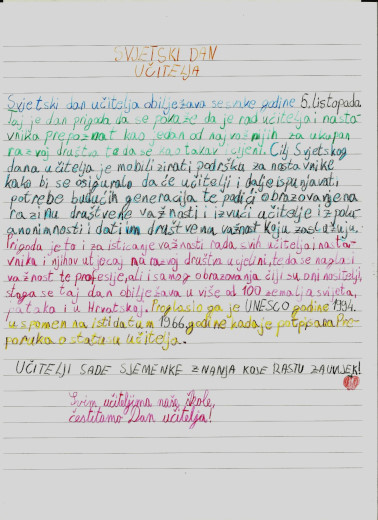 SVJETSKI DAN
UČITELJA
Svjetski dan učitelja obilježava se svake godine 5. listopada.
Taj je dan prigoda da se pokaže da je rad učitelja i nasta-
vnika prepoznat kao jedan od najvažnijih za ukupan
razvoj društva te da se kao takav i cijeni. Cilj Svjetskog
dana učitelja je mobilizirati podršku za nastavnike
kako bi se osiguralo da će učitelji i dalje ispunjavati
potrebe budućih generacija te podići obrazovanje na
razinu društvene važnosti i izvući učitelje iz polu-
anonimnosti i dati im društvenu važnost koju zaslužuju.
Prigoda je to i za isticanje važnosti rada svih učitelja i nasta-
vnika i njihov utjecaj na razvoj društva u cjelini, te da se naglasi
važnost te profesije, ali i samog obrazovanja čiji su oni nositelji,
stoga se taj dan obilježava u više od 100 zemalja svijeta,
pa tako i u Hrvatskoj. Proglasio ga je UNESCO godine 1994.
u spomen na isti datum 1966. godine kada je potpisana Pre-
poruka o statusu učitelja.
UČITELJI SADE SJEMENKE ZNANJA KOJE RASTU ZAUVIJEK!
Svim učiteljima naše škole,
čestitamo Dan učitelja!